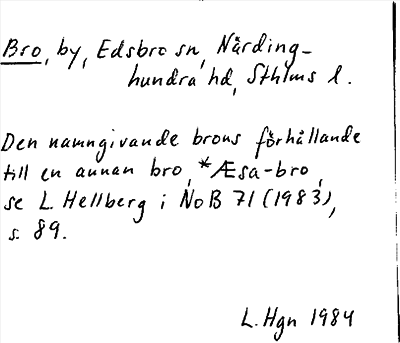 Bro, by, Edsbro sn, Närding-
hundra hd, Sthlms l.
Den namngivande brons förhållande
till en annan bro, *Æsa-bro,
se L. Hellberg i NoB 71 (1983),
s. 89.
L. Hgn 1984